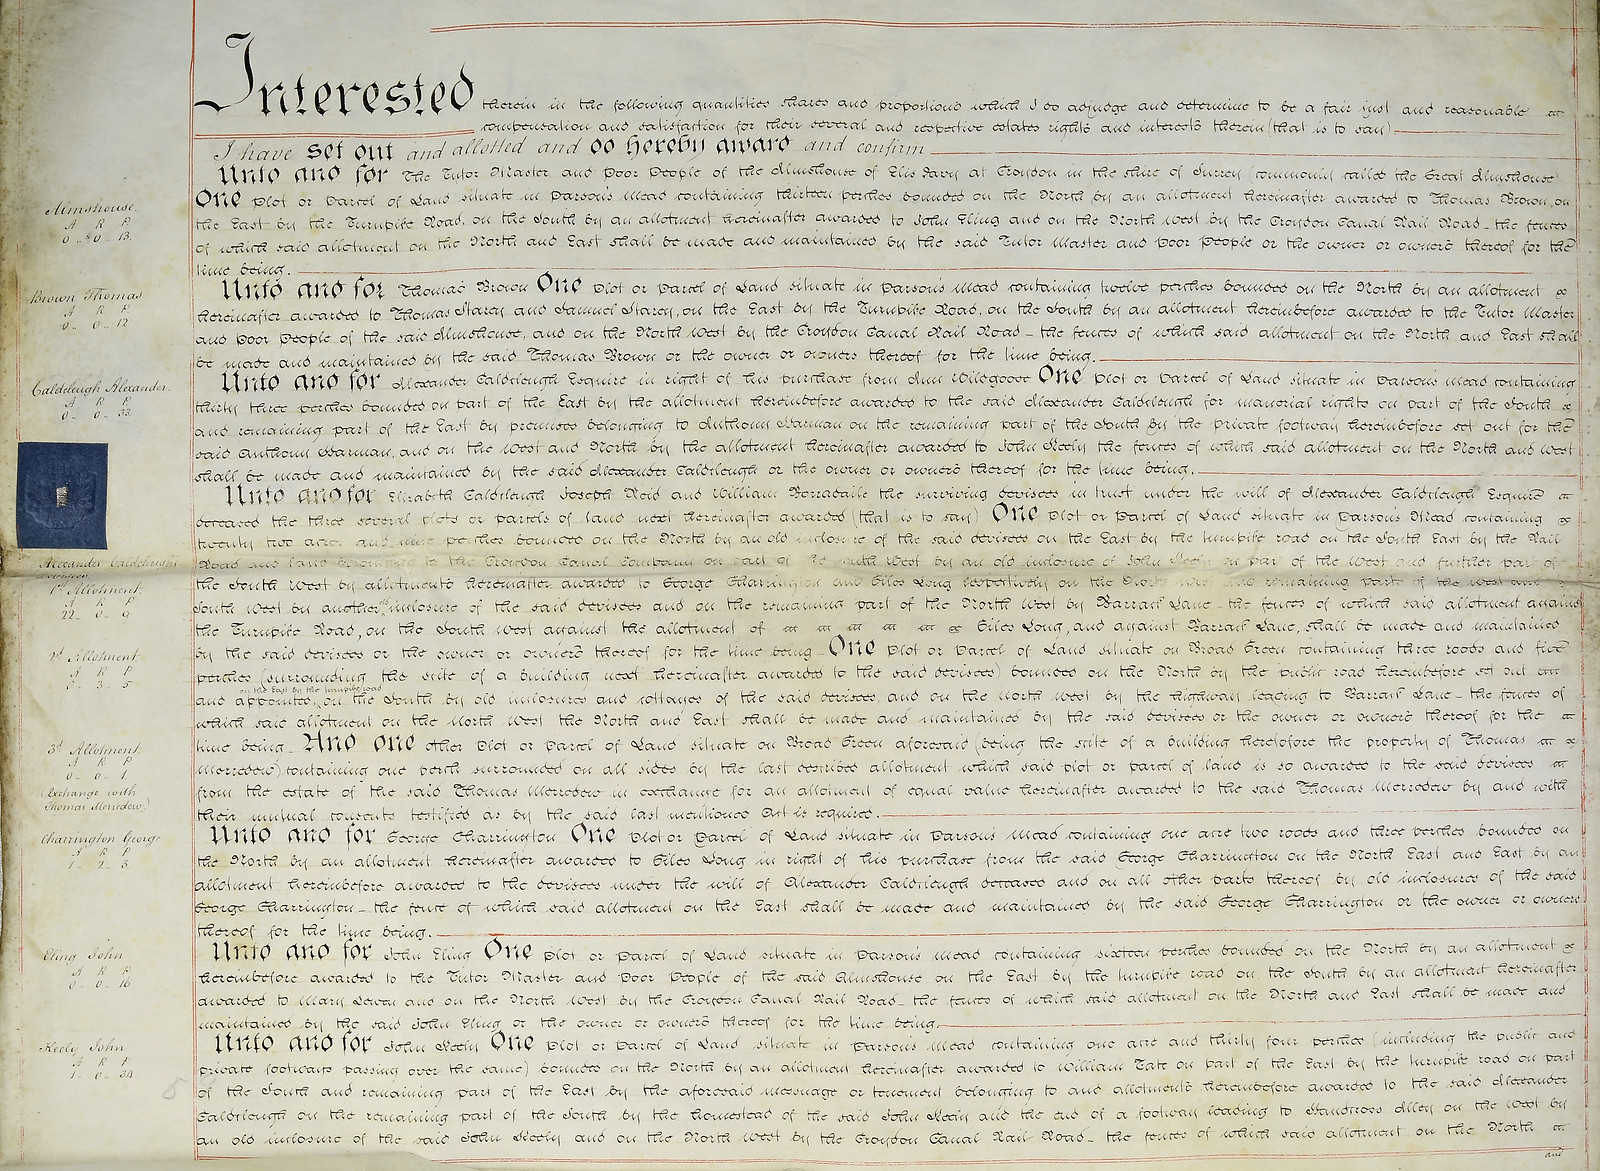 Interested therein in the following quantities shares and proportions which I do adjudge and determine to be a fair just and reasonable
compensation and satisfaction for their several and respective estates rights and interests therein (that is to say)
I have set out and allotted and do hereby award and confirm
Unto and for The Tutor Master and Poor People of the Almshouse of Elis Davy at Croydon in the shire of Surrey (commonly called the Great Almshouse)
Almshouse.
One Plot or Parcel of Land situate in Parson's Mead containing thirteen perches bounded on the North by an allotment hereinafter awarded to Thomas Brown, on
A R P
the East by the Turnpike Road, on the South by an allotment hereinafter awarded to John Eling and on the North West by the Croydon Canal Rail Road - the fences
0 - 0 - 13.
of which said allotment on the North and East shall be made and maintained by the said Tutor Master and Poor People or the owner or owners thereof for the
time being.
Brown Thomas
Unto and for Thomas Brown One Plot or Parcel of Land situate in Parson's Mead containing twelve perches bounded on the North by an allotment
A R P
hereinafter awarded to Thomas Starey and Samuel Starey, on the East by the Turnpike Road, on the South by an allotment hereinbefore awarded to the Tutor Master
0 - 0 - 12
and Poor People of the said Almshouse, and on the North West by the Croydon Canal Rail Road - the fences of which said allotment on the North and East shall
be made and maintained by the said Thomas Brown or the owner or owners thereof for the time being.
Caldcleugh Alexander.
Unto and for Alexander Caldcleugh Esquire in right of his purchase from Ann Wildgoose One Plot or Parcel of Land situate in Parson's Mead containing
A R P
thirty three perches bounded on part of the East by the allotment hereinbefore awarded to the said Alexander Caldcleugh for manorial rights on part of the South
0 - 0 - 33.
and remaining part of the East by premises belonging to Anthony Harman on the remaining part of the South by the private footway hereinbefore set out for the
said Anthony Harman, and on the West and North by the allotment hereinafter awarded to John Keely the fences of which said allotment on the North and West
shall be made and maintained by the said Alexander Caldcleugh or the owner or owners thereof for the time being.
Unto and for Elizabeth Caldcleugh Joseph Reid and William Borradaile the surviving devisees in trust under the will of Alexander Caldcleugh Esquire
deceased the three several plots or parcels of land next hereinafter awarded (that is to say) One Plot or Parcel of Land situate in Parson's Mead containing
twenty two acres and nine perches bounded on the North by an old inclosure of the said devisees on the East by the turnpike road on the South East by the Rail
Alexander Caldcleugh's
devisees
Road and land belonging to the Croydon Canal Company on part of the South West by an old inclosure of John Keely on part of the West and further part of
1st Allotment.
the South West by allotments hereinafter awarded to George Charrington and Giles Long respectively on the North West and remaining parts of the West and
A R P
22 - 0 - 9
South West by another inclosure of the said devisees and on the remaining part of the North West by Barrack Lane - the fences of which said allotment against
the Turnpike Road, on the South West against the allotment of Giles Long, and against Barrack Lane, shall be made and maintained
2d Allotment
by the said devisees or the owner or owners thereof for the time being - One Plot or Parcel of Land situate on Broad Green containing three roods and five
A R P
perches (surrounding the site of a building next hereinafter awarded to the said devisees) bounded on the North by the public road hereinbefore set out and
0 - 3 - 5
on the East by the turnpike road
and appointed, on the South by old inclosures and cottages of the said devisees, and on the north west by the highway leading to Barrack Lane - the fences of
which said allotment on the North West the North and East shall be made and maintained by the said devisees or the owner or owners thereof for the
3d Allotment.
time being - And one other Plot or Parcel of Land situate on Broad Green aforesaid (being the scite of a building heretofore the property of Thomas
A R P
Merredew) containing one perch surrounded on all sides by the last described allotment which said plot or parcel of land is so awarded to the said devisees
0 - 0 - 1.
(Exchange with
from the estate of the said Thomas Merredew in exchange for an allotment of equal value hereinafter awarded to the said Thomas Merredew by and with
Thomas Merredew.)
their mutual consents testified as by the said last mentioned Act is required.
Charrington George
Unto and for George Charrington One Plot or Parcel of Land situate in Parson's Mead containing one acre two roods and three perches bounded on
A R P
the North by an allotment hereinafter awarded to Giles Long in right of his purchase from the said George Charrington on the North East and East by an
1 - 2 - 3.
allotment hereinbefore awarded to the devisees under the will of Alexander Caldcleugh deceased and on all other parts thereof by old inclosures of the said
George Charrington - the fence of which said allotment on the East shall be made and maintained by the said George Charrington or the owner or owners
thereof for the time being.
Eling John
Unto and for John Eling One Plot or Parcel of Land situate in Parson's Mead containing sixteen perches bounded on the North by an allotment
A R P
hereinbefore awarded to the Tutor Master and Poor People of the said Almshouse on the East by the turnpike road on the South by an allotment hereinafter
0 - 0 - 16
awarded to Mary Lewen and on the North West by the Croydon Canal Rail Road - the fences of which said allotment on the North and East shall be made and
maintained by the said John Eling or the owner or owners thereof for the time being.
Keely John
Unto and for John Keely One Plot or Parcel of Land situate in Parson's Mead containing one acre and thirty four perches (including the public and
A R P
private footways passing over the same) bounded on the North by an allotment hereinafter awarded to William Tate on part of the East by the turnpike road on part
1 - 0 - 34
of the South and remaining part of the East by the aforesaid messuage or tenement belonging to and allotments hereinbefore awarded to the said Alexander
Caldcleugh on the remaining part of the South by the homestead of the said John Keely and the end of a footway leading to Handcross Alley on the West by
an old inclosure of the said John Keely and on the North West by the Croydon Canal Rail Road - the fences of which said allotment on the North
and